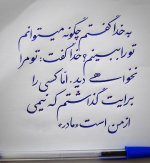 به خدا گفتم چگونه میتوانم
تو را ببینم؟ خدا گفت: تو مرا
نخواهی دید. اما کسی را
برایت گذاشتم که نیمی
از من است «مادر»